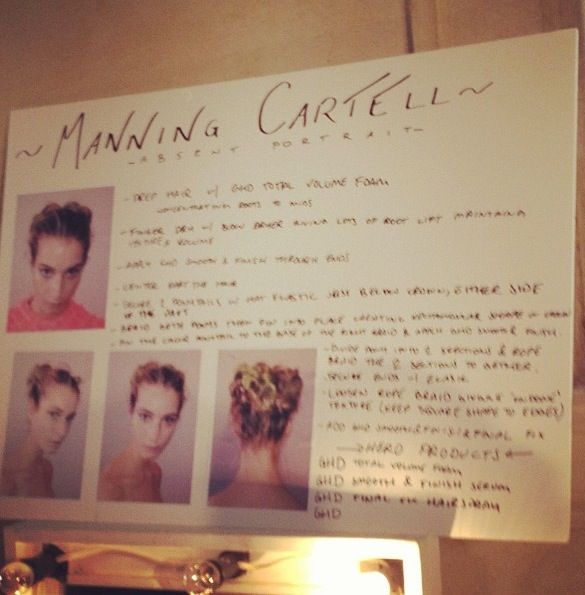 ~ MANNING CARTELL ~
- ABSENT PORTRAIT -
- PREP HAIR W/ GHD TOTAL VOLUME FOAM
CONCENTRATING ROOTS TO MIDS
- FINGER DRY W/ BLOW DRYER GIVING LOTS OF ROOT LIFT MAINTAINING
TEXTURE & VOLUME
- APPLY GHD SMOOTH & FINISH THROUGH ENDS
- CENTER PART THE HAIR
- SECURE 2 PONYTAILS W/ HAT ELASTIC JUST BELOW CROWN, EITHER SIDE
OF THE PART
- BRAID BOTH PONYS THEN PIN INTO PLACE CREATING RECTANGULAR SHAPE OF
TO THE BASE OF THE FIRST BRAID &
- DIVIDE INTO 2 SECTIONS & ROPE
BRAID THE 2 SECTIONS TOGETHER.
SECURE ENDS W/ ELASTIC
- LOOSEN ROPE BRAID
TEXTURE (KEEP SQUARE SHAPE TO EDGES)
- ADD GHD SMOOTH & FINISH & FINAL FIX
HERO PRODUCTS
GHD TOTAL VOLUME FOAM
GHD SMOOTH & FINISH SERUM
GHD FINAL FIX HAIRSPRAY
GHD